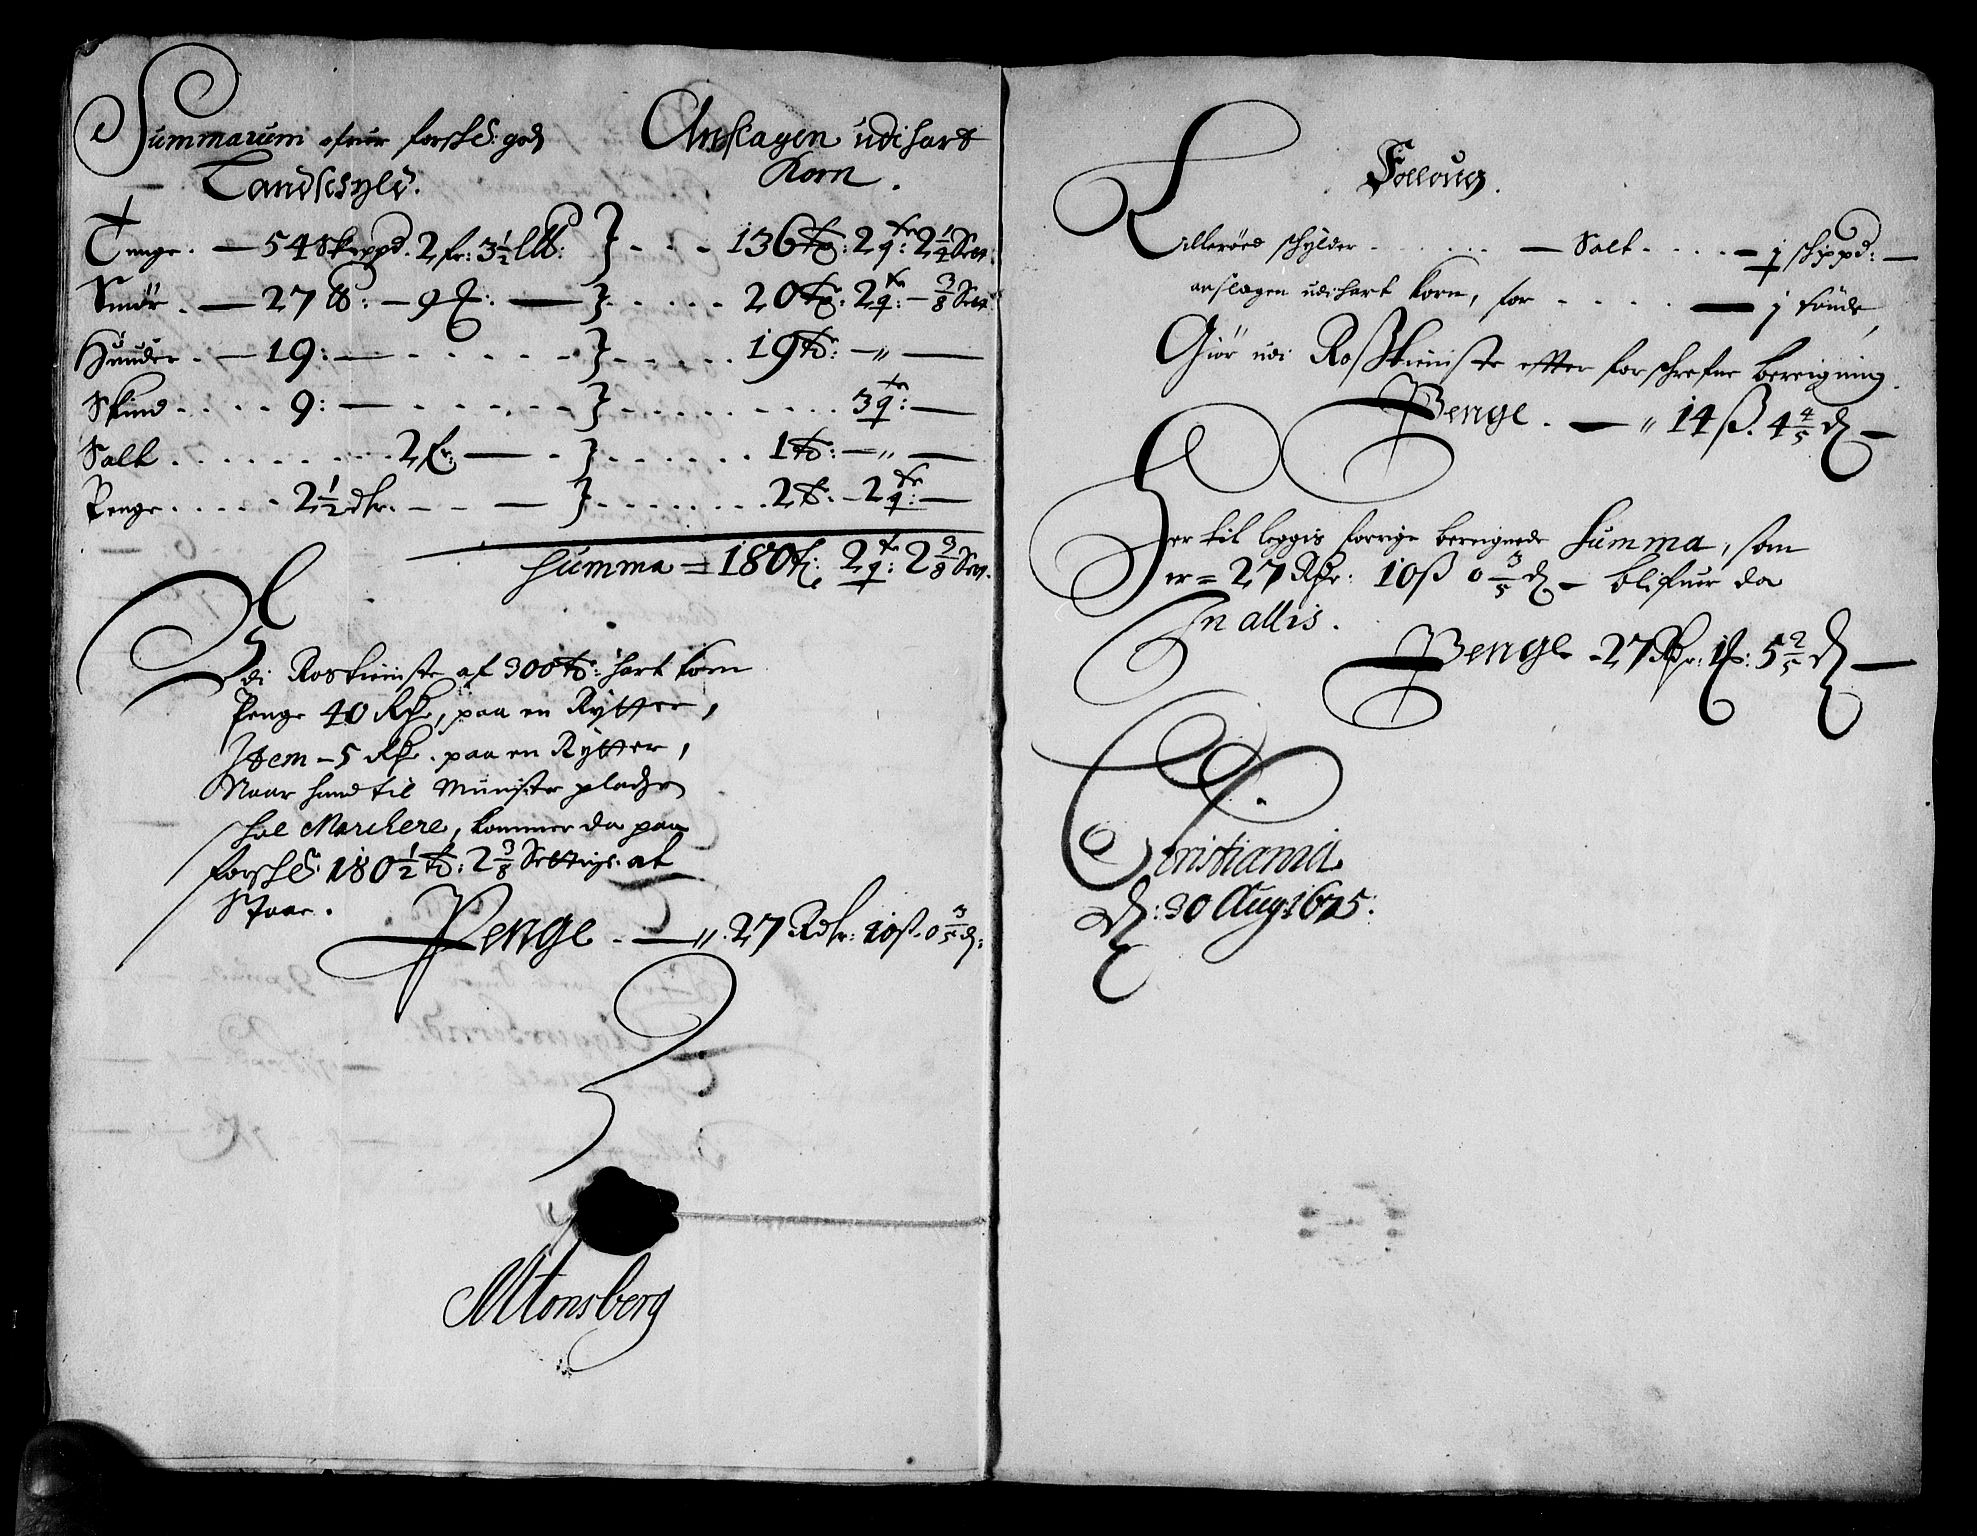 Summarum ofuer forskr: godz
Landschyld.
Anslagen udi hart
Korn.
Tunge. — 54 Skippd. 2 fr: 3½ L℔: } - - - 136 tr: 2 fr q: 2¼ Sett:
Smør. — 27 ℔: — 9 ℔: — } - - - 20 tr: 2 fr q: — 3/8 Sett
Huuder. — 19: — } - - - 19 td: — „ —
Skind. . . . 9: — } - - - 3 fr q: —
Salt. . . . 2 fr: — } - - - 1 td: — „ —
Penge. . . . 2½ dlr. — } - - - 2 td: — 2 fr q: —
Summa = 180 t: 2 fr q: 2 3/8 Sett.
Udi Roskieniste af 300 td: hart korn
Penge 40 Rdr, paa en Rytter,
Item - 5 Rdr. paa en Rytter,
Naar hand til Munster pladzen
skal Marchere, kommer da paa
forskr: 180½ td: 2 3/8 Settings: at
Suare.
Penge. — „ 27 Rdlr: 10 ß. 0 3/5 d:
MTonsberg
Folloug.
Lillerøed schylder . . . . — Salt . . . — 1 schippd: —
anslagen udi hart korn, for - - - — 1 tønde,
Giør udi Roßkieniste efter forschrefne bereigning.
Penge. — „ 14 ß. 4 4/5 d —
Her til leggis forrige bereignede Summa, som
er = 27 Rdr: 10 ß 0 3/5 d — blifuer da
In allis.
Penge - 27 Rdr: 1 ß: 5 2/5 d —
Christiania
d: 30 Aug: 1675: